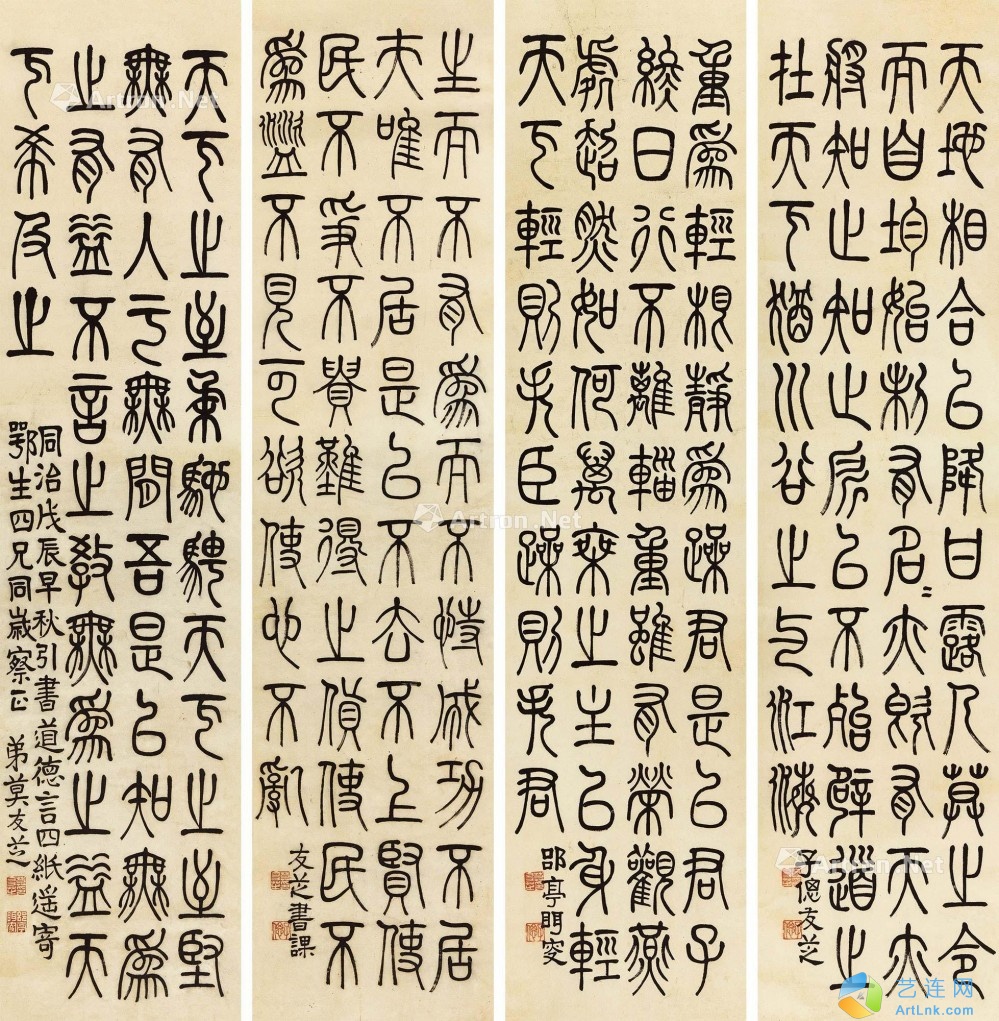 天地相合以降甘露人莫之令
而自均始制有名=亦既有天亦
將知止知止所以不殆辟道之
在天下猶川谷之与江海
子偲友芝
重為輕根靜為躁君是以君子
終日行不離輜重雖有榮觀燕
處超然如何萬乘之主以身輕
天下輕則失臣躁則失君
郘亭眲叟
生而不有為而不恃成功不居
夫唯不居是以不去不上賢使
民不爭不貴難得之貨使民不
為盜不見可欲使心不亂
友芝書課
天下之至柔馳騁天下之至堅
無有入于無間吾是以知無為
之有益不言之教無為之益天
下希及之
同治戊辰早秋引書道德言四紙遥寄
鄂生四兄同歲察正 弟莫友芝
Artron.Net
Artron.Net
Artron.Net
艺连网
ArtLnk.com